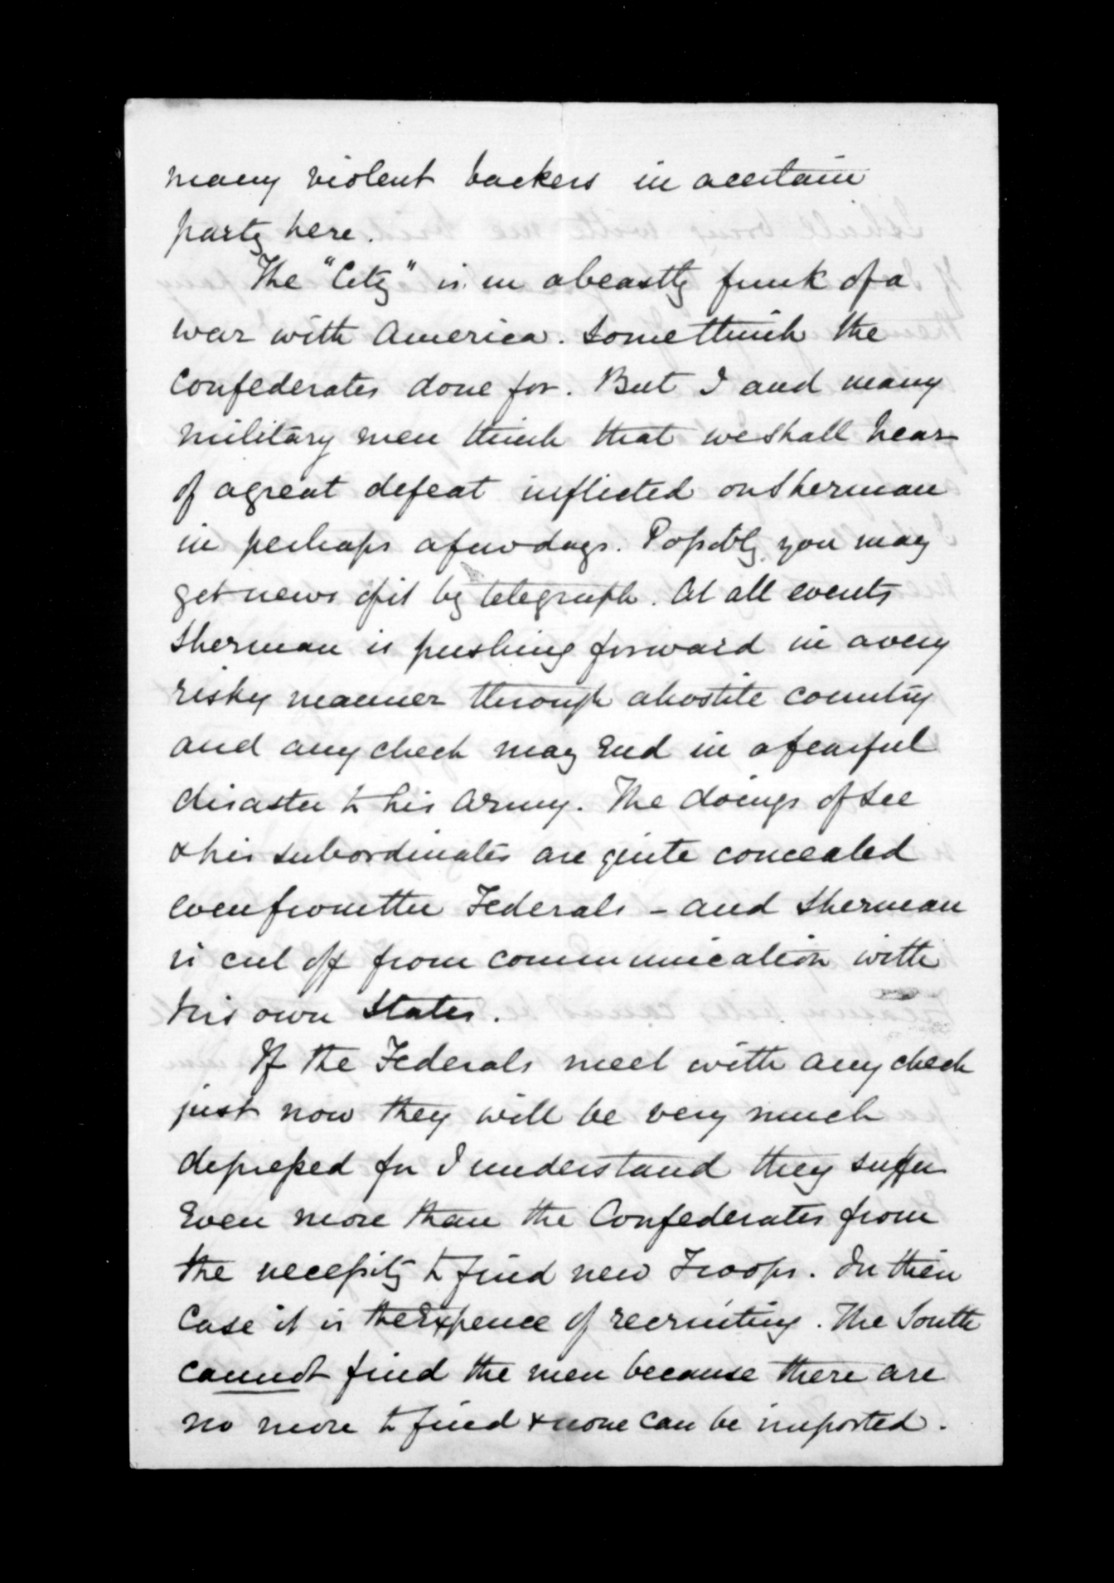 many violent backers in a certain
party here.
The "City" is in a beastly funk of a
war with America. Some think the
Confederates done for. But I and many
military men think that we shall hear
of a great defeat inflicted on Sherman
in perhaps a few days. Possibly you may
get news of it by telegraph. At all events
Sherman is pushing forward in a very
risky manner through a hostile country
and any check may End in a fearful
disaster to his Army. The doings of Lee
& his subordinates are quite concealed
even from the Federals - and Sherman
is cut off from communication with
his own States.
If the Federals meet with any check
just now they will be very much
depressed for I understand they suffer
Even more than the Confederates from
the necessity to find new Troops. In their
Case it is the Expence of recruiting. The South
cannot find the men because there are
no more to find & none can be imported.